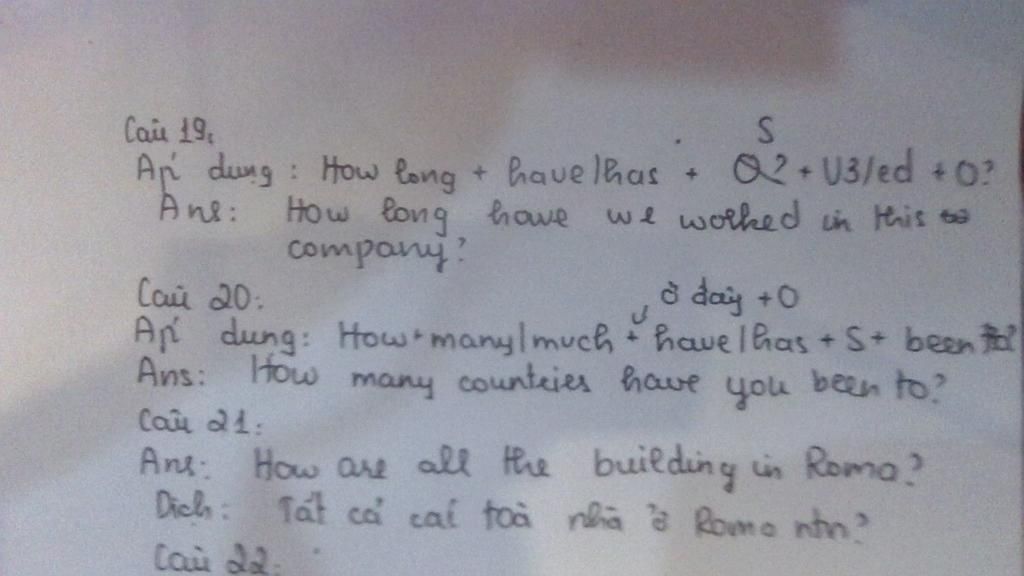 Câu 19:
S
Áp dụng : How long + have/has + Q? + V3/ed + O?
Ans: How long have we worked in this
company?
Câu 20:
ở đây + O
Áp dụng: How + many/much + have/has + S + been to?
Ans: How many countries have you been to?
Câu 21:
Ans: How are all the building in Roma?
Dịch: Tất cả các toà nhà ở Roma ntn?
Câu 22: